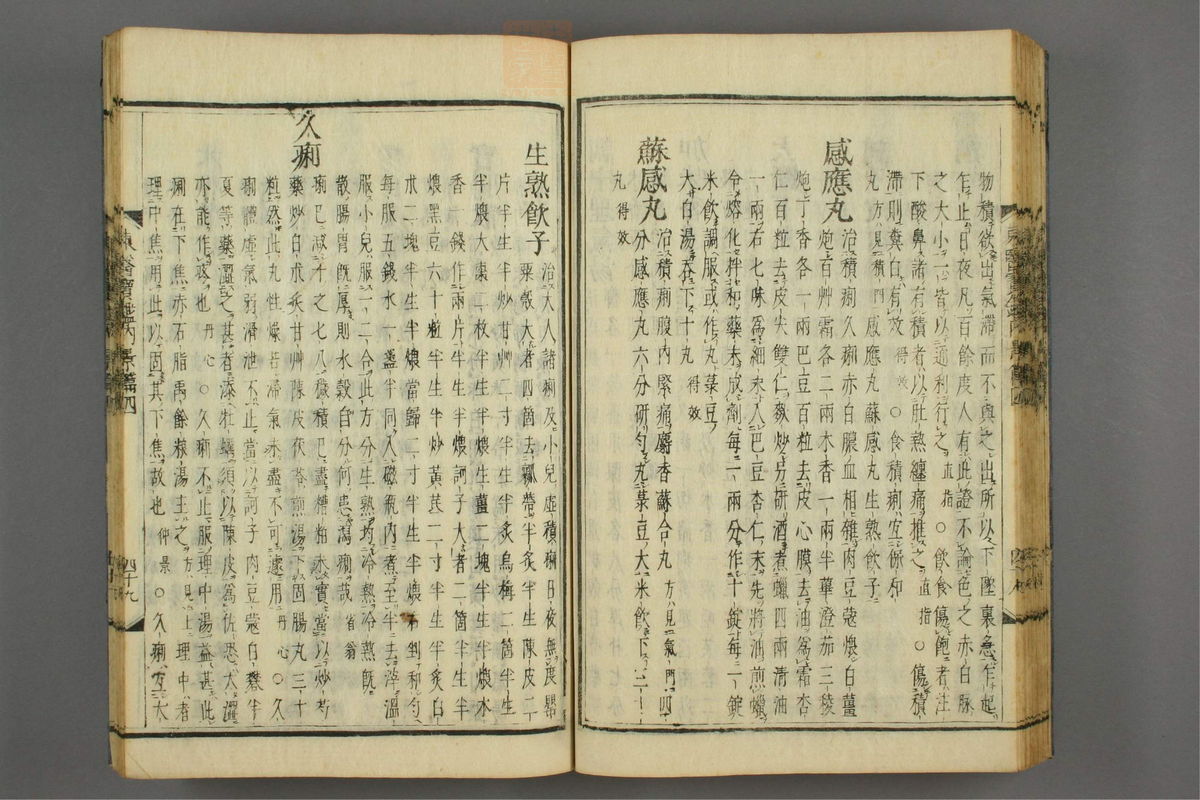 物積欲出氣滯而不與之出所以下墜裏急乍起
乍止日夜凡百餘度人有此證不論色之赤白脉
之大小一皆以通利行之直指○飮食傷飽者注
下酸臭諸有積者以肚熱纏痛推之直指○傷積
滯則糞白有故得效○食積痢宜
丸方見積門感應丸蘇感丸生熟飮子
感應丸治積痢久痢赤白膿血相雜肉豆蔻煨白薑
炮百艸霜各二兩木香一兩半蓽澄茄三稜
炮丁香各一兩巴豆百粒去皮心膜去油爲霜杏
仁百粒去皮尖雙仁麩炒另研酒煮蠟四兩淸油
一兩右七味爲細末入巴豆杏仁末先將油煎蠟
令熔化拌和藥末成劑每一兩分作十錠每一錠
米飮調服或作丸菉豆大白湯呑下十丸得效
蘇感丸治積痢腹内緊痛麝香蘇合丸方見氣門四
分感應丸六分研匀丸菉豆大米飮下二
丸得效
生熟飮子治大人諸痢及小兒虛積痢日夜無度罌
粟殼大者四箇去瓤帶半炙半生陳皮二
片半生半炒甘艸二寸半生半炙烏梅二箇半生
半煨大棗二枚半生半煨生薑二塊半生半煨木
香一錢作兩片半生半煨訶子大者二箇半生半
煨黑豆六十粒半生半炒黃芪二寸半生半炙白
朮二塊半生半煨當歸二寸半生半煨右剉和匀
每服五錢水一盞半同入磁甁内煮至半去滓溫
服小兒服一二合此方分生熟均冷熱冷熱旣
散腸胃旣厚則水穀自分何患瀉痢哉省翁
久痢痢已減十之七八穢積已盡糟粕未實當以炒芍
藥炒白朮炙甘艸陳皮茯苓煎湯下固腸丸三十
粒然此丸性燥若滯氣未盡不可遽用丹心○久
痢體虛氣弱滑泄不止當以訶子肉豆蔻白礬半
夏等藥澁之甚者添牡蠣須以陳皮爲佐恐太澁
亦能作疼也丹心○久痢不止服理中湯益甚此
痢在下焦赤石脂禹餘粮湯主之方見上理中者
理中焦用此以固其下焦故也仲景○久痢宜大
東醫寶鑑内景篇四
四十九